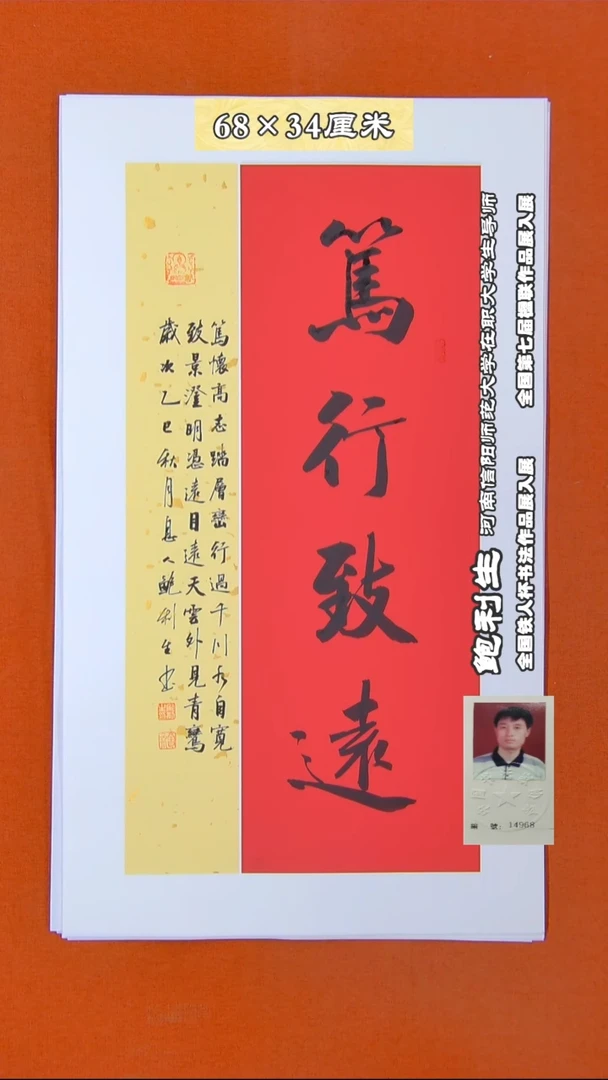 68×34厘米
篤行致遠
篤懷高志踏層巒行過千川水自寬
致景澄明憑遠目遠天雲外見青鸞
歲次乙巳秋月息人鲍利生书
鲍利生 河南信阳师范大学在职大学生导师
全国铁人杯书法作品展入展
全国第七届楹联作品展入展
編號:14968